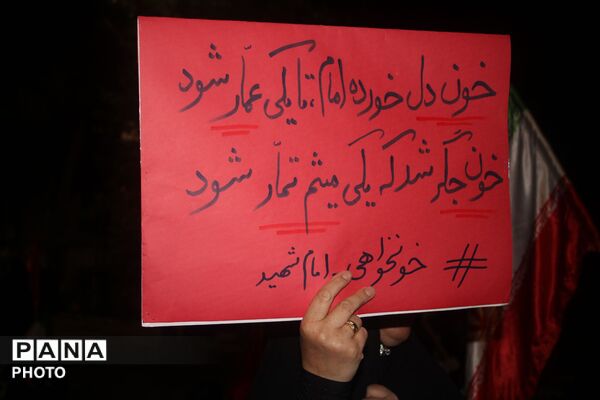 خون دل خورده امام، تا یکی عمّار شود
خون جگر شد که یکی میثم تمّار شود
#خونخواهی_امام شهید
PANA
PHOTO